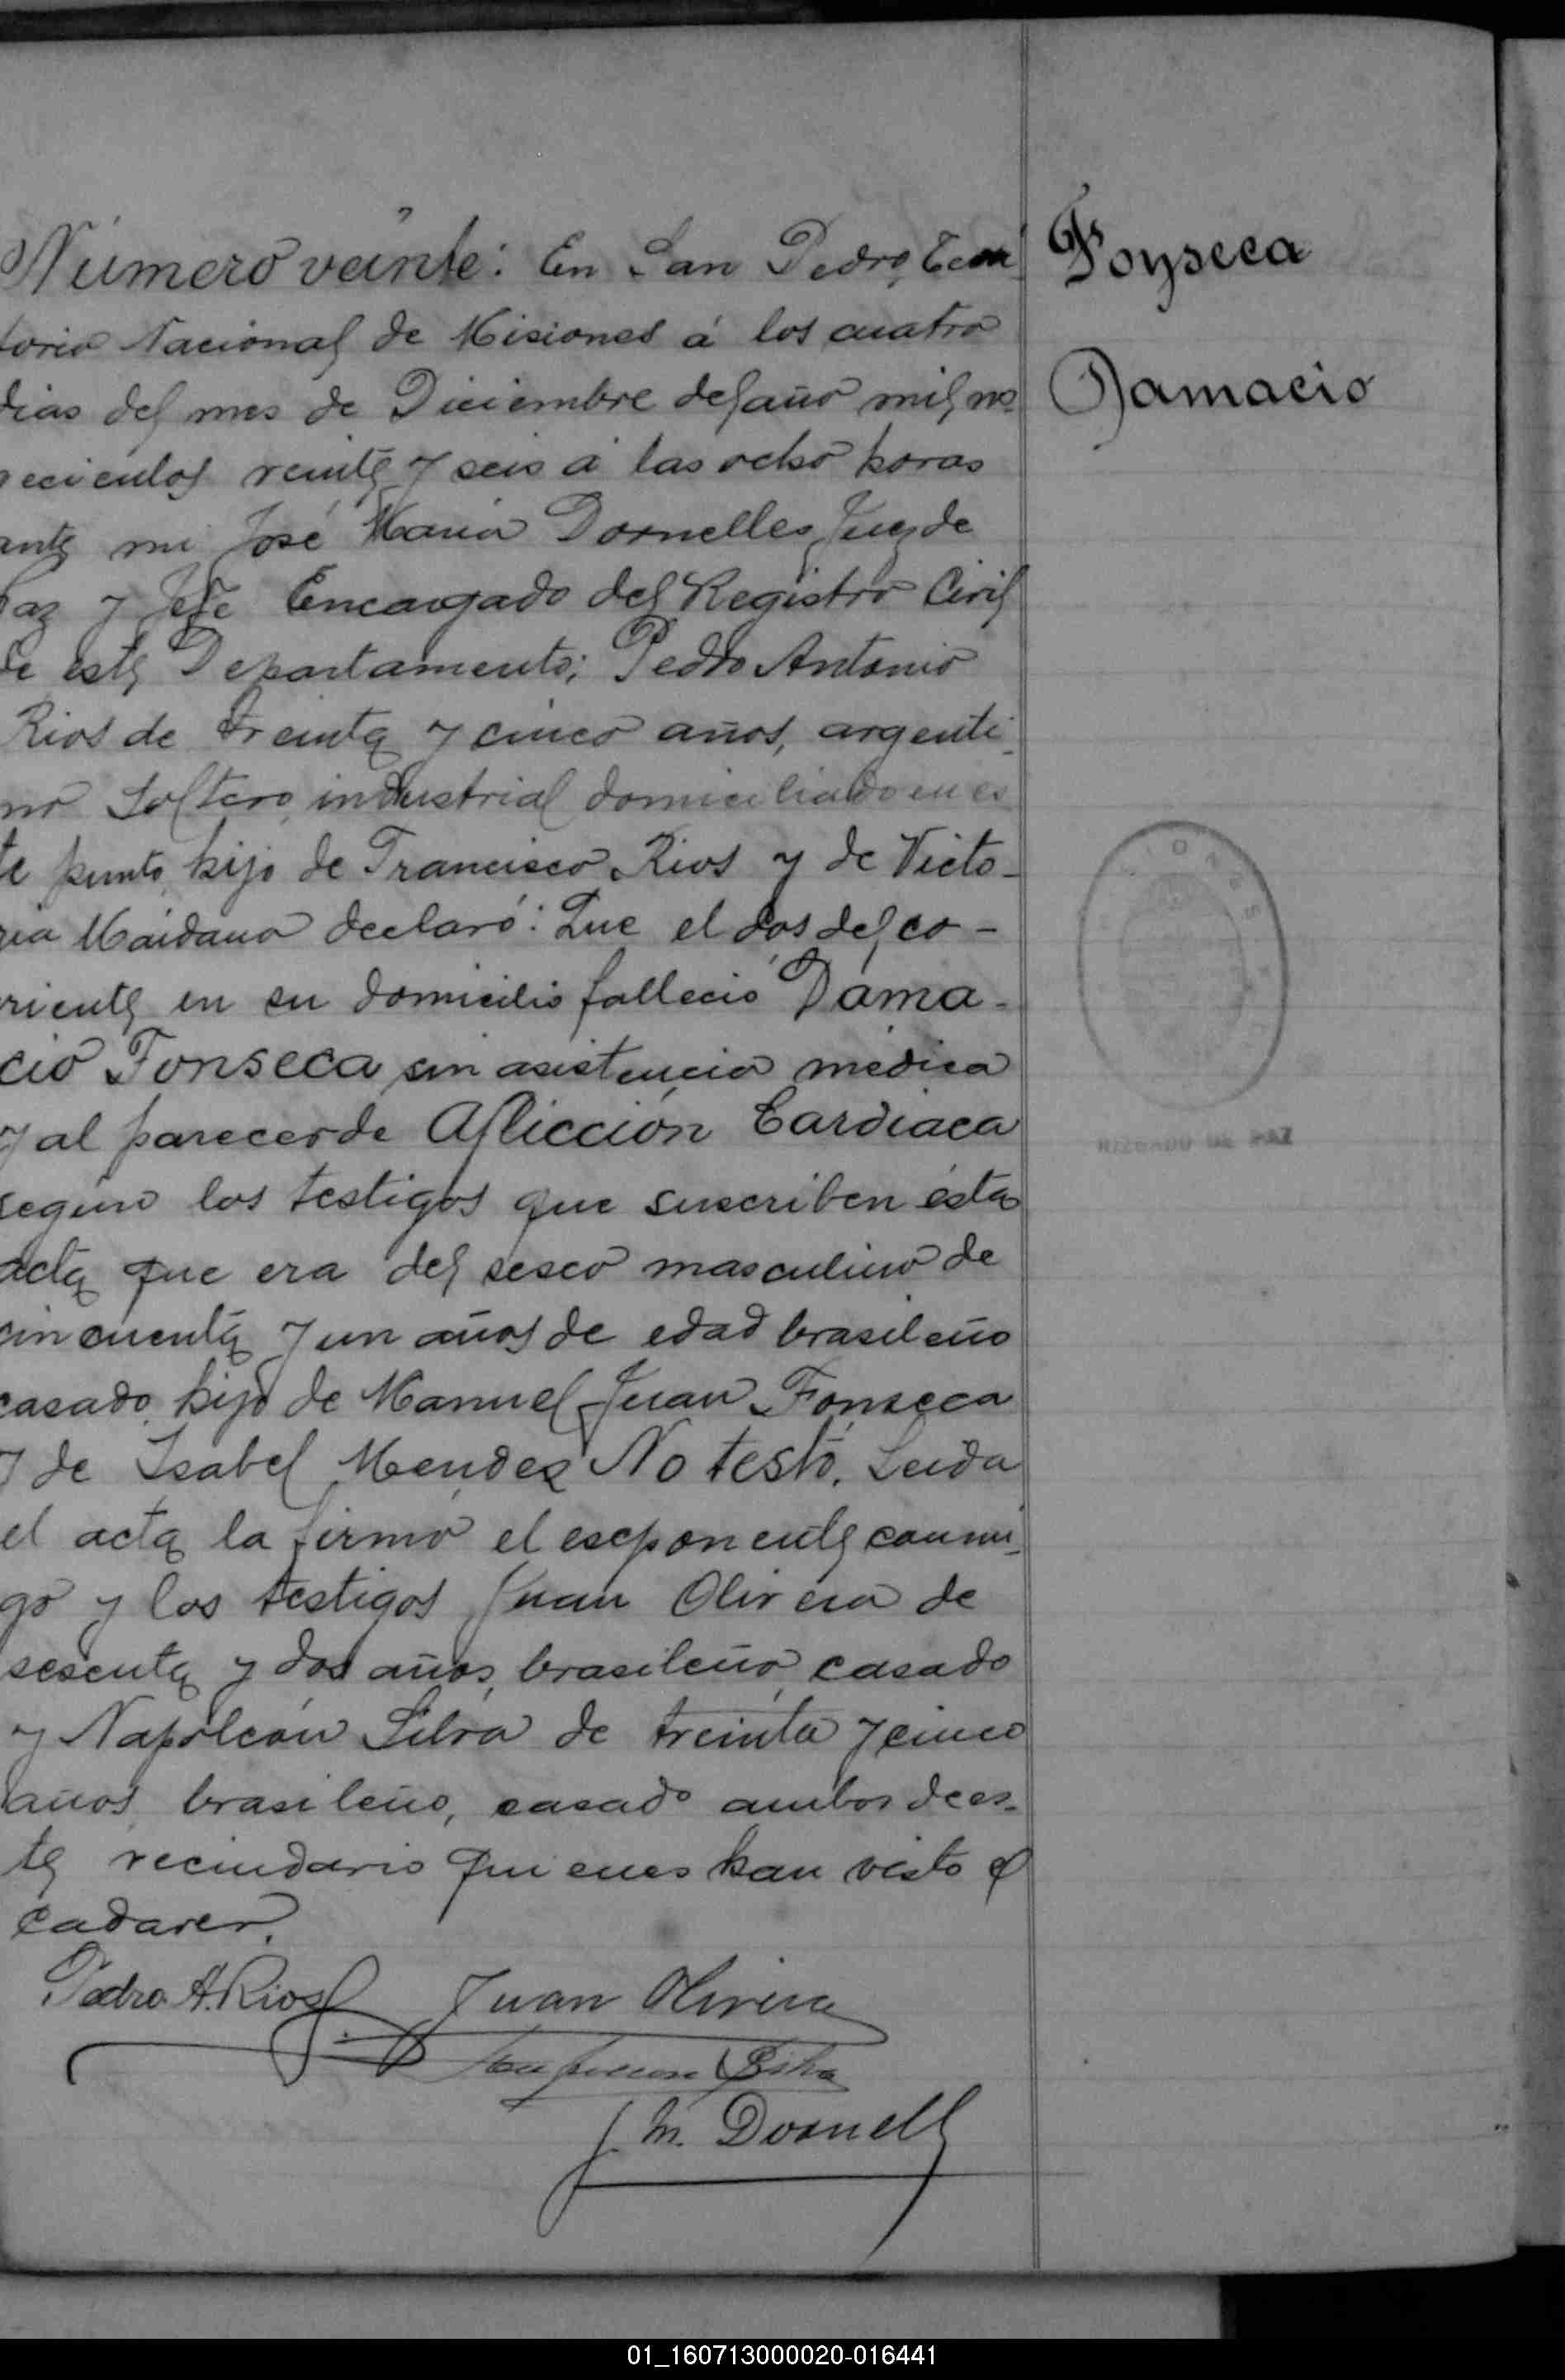 Número veinte: En San Pedro, Terri
torio Nacional de Misiones á los cuatro
dias del mes de Diciembre del año mil no
vecientos veinte y seis á las ocho horas
ante mi José Maria Dornelles Juez de
Paz y Jefe Encargado del Registro Civil
de este Departamento; Pedro Antonio
Rios de treinta y cinco años, argenti_
no Soltero, industrial domiciliado en es
te punto, hijo de Francisco Rios y de Victo-
ria Maidana declaró: Que el dos del co-
rriente en su domicilio falleció Dama-
cio Fonseca sin asistencia médica
y al parecer de Aflicción Cardiaca
segun los testigos que suscriben ésta
acta que era del secso masculino de
cincuenta y un años de edad brasileño
casado, hijo de Manuel Juan Fonseca
y de Isabel Mendez No testó. Leida
el acta la firmó el esponente conmi_
go y los testigos Juan Olivera de
sesenta y dos años, brasileño, casado
y Napoleón Silva de treinta y cinco
años, brasileño, casado ambos de es-
te vecindario quienes han visto el
cadaver.
Pedro A. Rios Juan Olivera
Napoleon Silva
J. M. Dornell
Fonseca
Damacio
MISIONES
JUZGADO DE PAZ
01_160713000020-016441